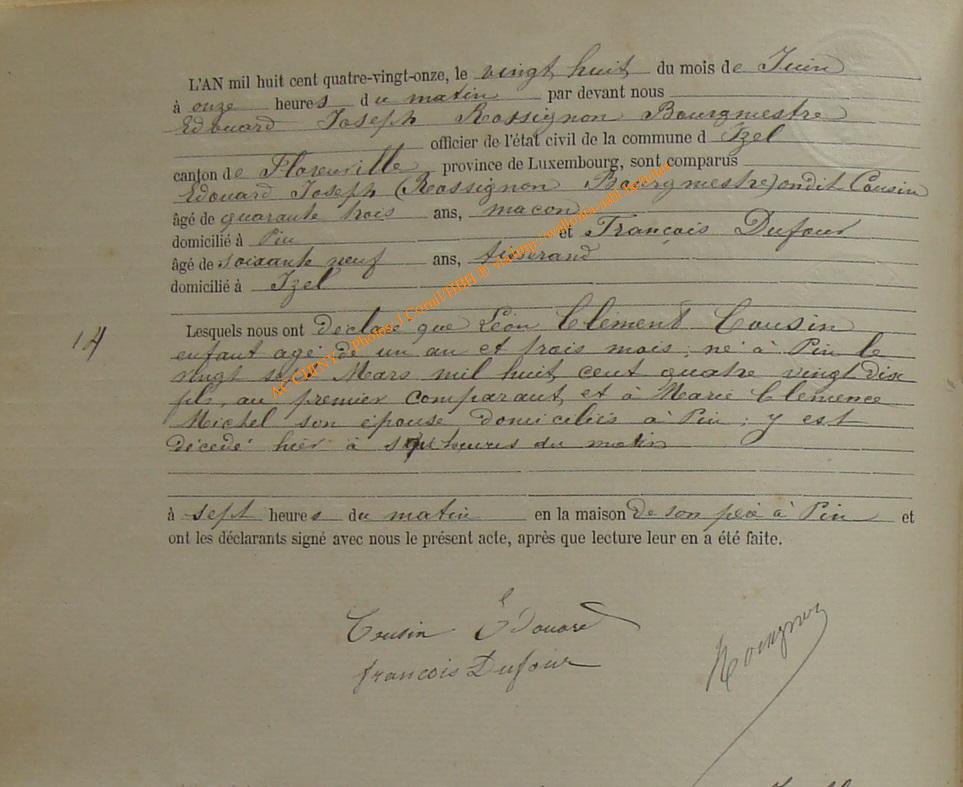 L'AN mil huit cent quatre-vingt-onze, le vingt huit du mois de Juin
à onze heures du matin par devant nous
Edouard Joseph Rossignon Bourgmestre
officier de l'état civil de la commune d Izel
canton de Florenville province de Luxembourg, sont comparus
Edouard Joseph (Rossignon Bourgmestre) on dit Cousin
âgé de quarante trois ans, macon
domicilié à Pin et François Dufour
âgé de soixante neuf ans, tisserand
domicilié à Izel
14
Lesquels nous ont déclaré que Léon Clément Cousin
enfant agé de un an et trois mois, né à Pin le
vingt sept Mars mil huit cent quatre vingt dix
fils, au premier comparant et à Marie Clémence
Michel son épouse domiciliés à Pin ; y est
décédé hier à heures du matin
à sept heures du matin en la maison de son père à Pin et
ont les déclarants signé avec nous le présent acte, après que lecture leur en a été faite.
Cousin Edouard
françois Dufour
Rossignon